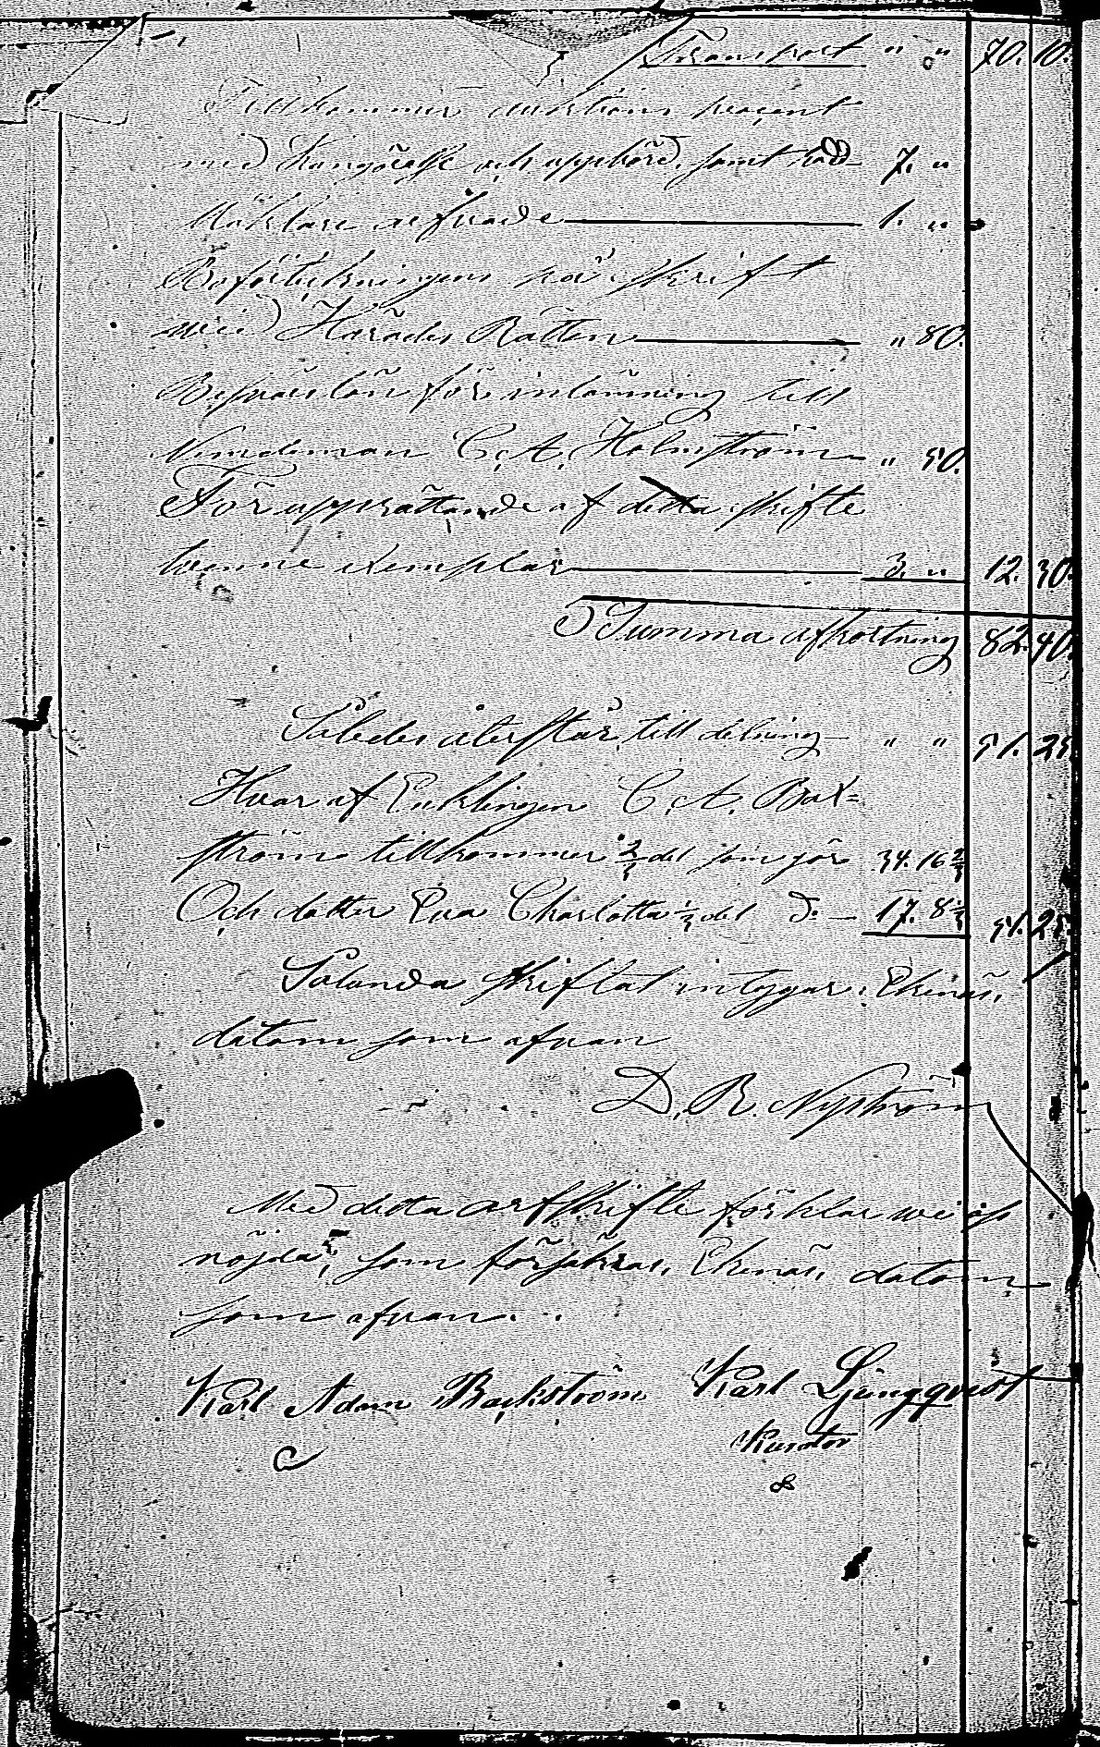 Transport " " 70. 10.
Tillkommer auktions procent
med Kungörelse och uppbörd, samt 7. "
Mäklare arfvode 1. "
Bevakningen på skrift
med Härads Rätten " 80.
Besvärslön för inlämning till
Nämdeman C. A. Holmström " 50.
För upprättande af detta skifte
tvenne exemplar 3. " 12. 30.
Summa afkortning 82. 40.
Således återstår till delning " " 51. 25.
Hvar af Enklingen C. A. Bak=
ström tillkommer 2/3 del som gör 34. 16 2/3
Och dotter Eva Charlotta 1/3 del d:o 17. 8 1/3 51. 25.
Sålunda skiftat intygar. Ekenäs,
datum som ofvan
D. R. Nyström
Med detta arfskifte förklar wi oss
nöjda, som försäkras, Ekenäs, datum
som ofvan.
Karl Adam Backström Karl Ljungqvist
Kurator